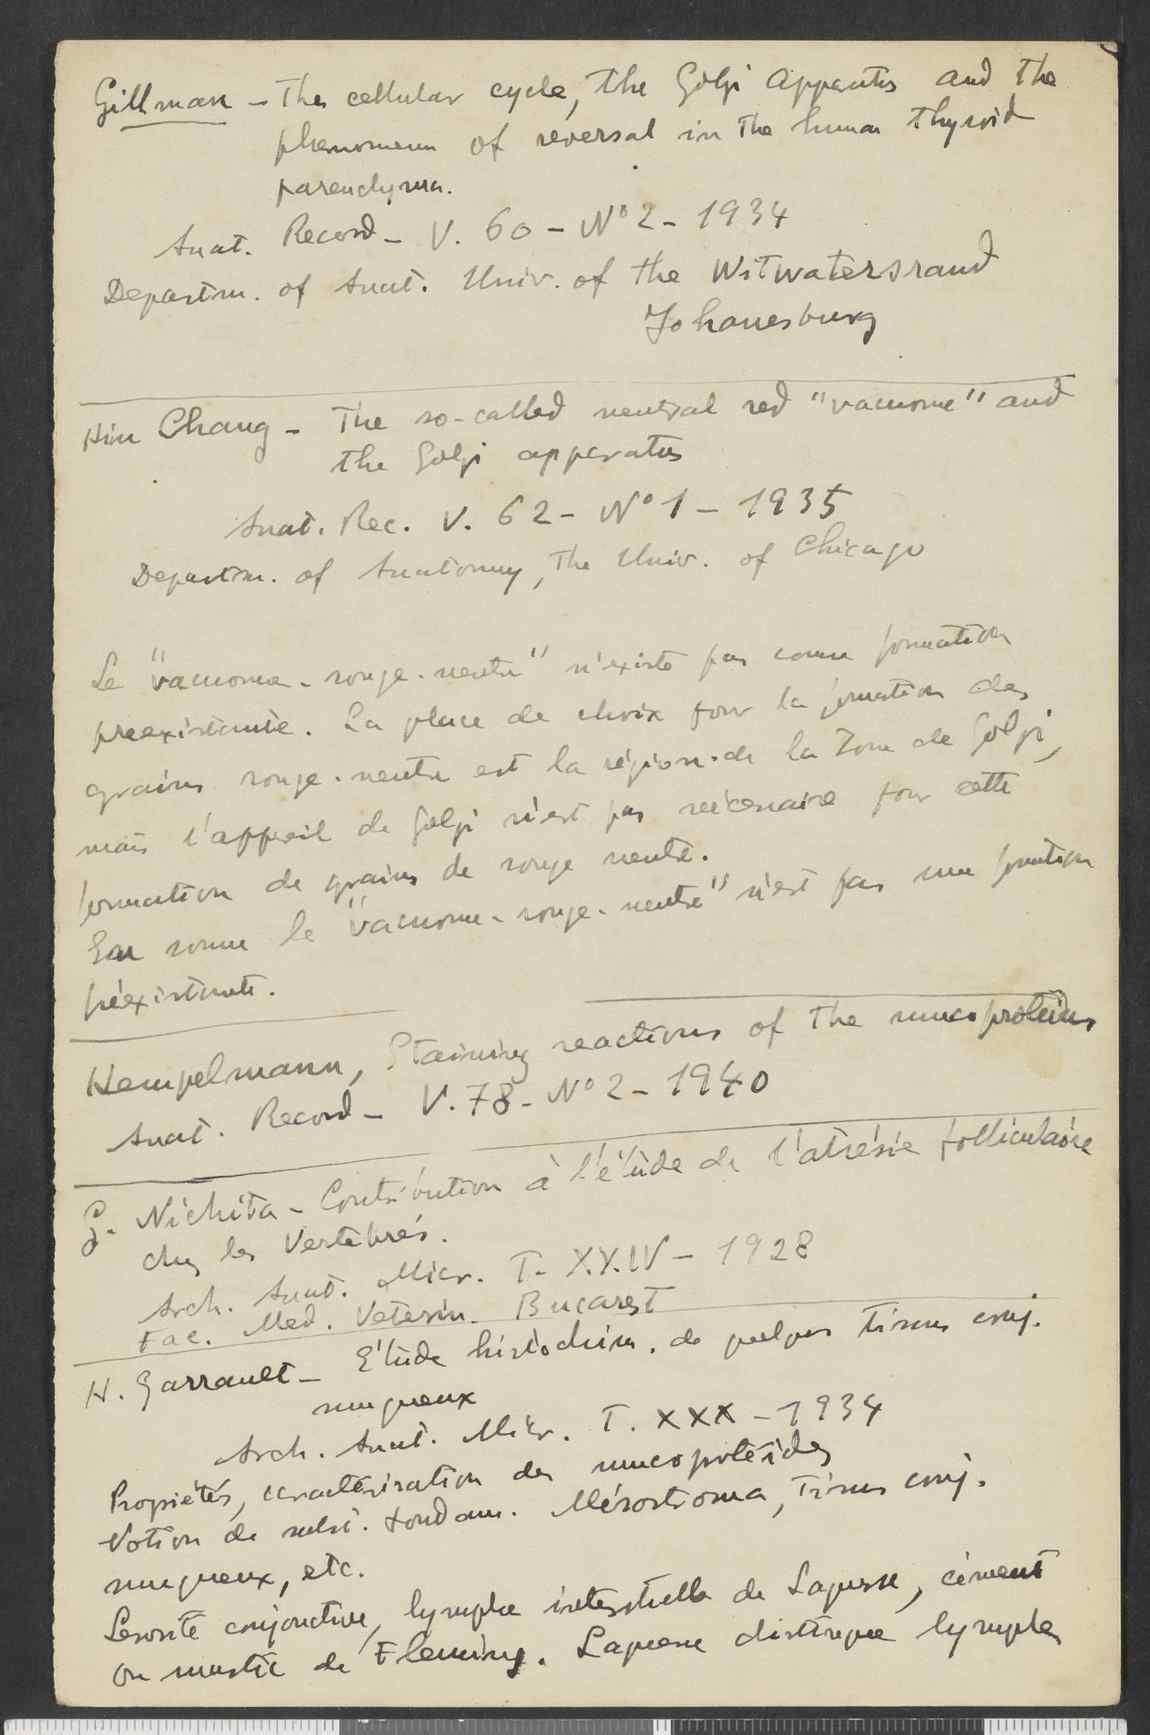 Gillman - The cellular cycle, the Golgi apparatus and the
phenomenon of reversal in the human thyroid
parenchyma.
Anat. Record - V. 60 - Nº 2 - 1934
Departm. of Anat. Univ. of the Witwatersrand
Johanesburg
Hin Chang - The so-called neutral red "vacuome" and
the Golgi apparatus
Anat. Rec. V. 62 - Nº 1 - 1935
Departm. of Anatomy, The Univ. of Chicago
Le "vacuome - rouge - neutre" n'existe pas comme formation
preexistante. La place de choix pour la formation des
grains rouge - neutre est la région de la Zone de Golgi,
mais l'appareil de Golgi n'est pas nécessaire pour cette
formation de grains de rouge neutre.
En somme le "vacuome - rouge - neutre" n'est pas une formation
préexistante.
Hempelmann, Staining reactions of the mucoproteins
Anat. Record - V. 78 - Nº 2 - 1940
G. Nichita - Contribution à l'étude de l'atrésie folliculaire
chez les Vertébrés.
Arch. Anat. Micr. T. XXIV - 1928
Fac. Med. Veterin. Bucarest
H. Garrault - Etude histochim. de quelques tissus conj.
muqueux
Arch. Anat. Micr. T. XXX - 1934
Propriétés, caractérisation des mucoprotéides
Notion de subst. fondam. Mésostroma, Tissus conj.
muqueux, etc.
conjonctive, lymphe interstitielle de Laguesse, ciment
ou mastic de Fleming. Laguesse distingue lymphe